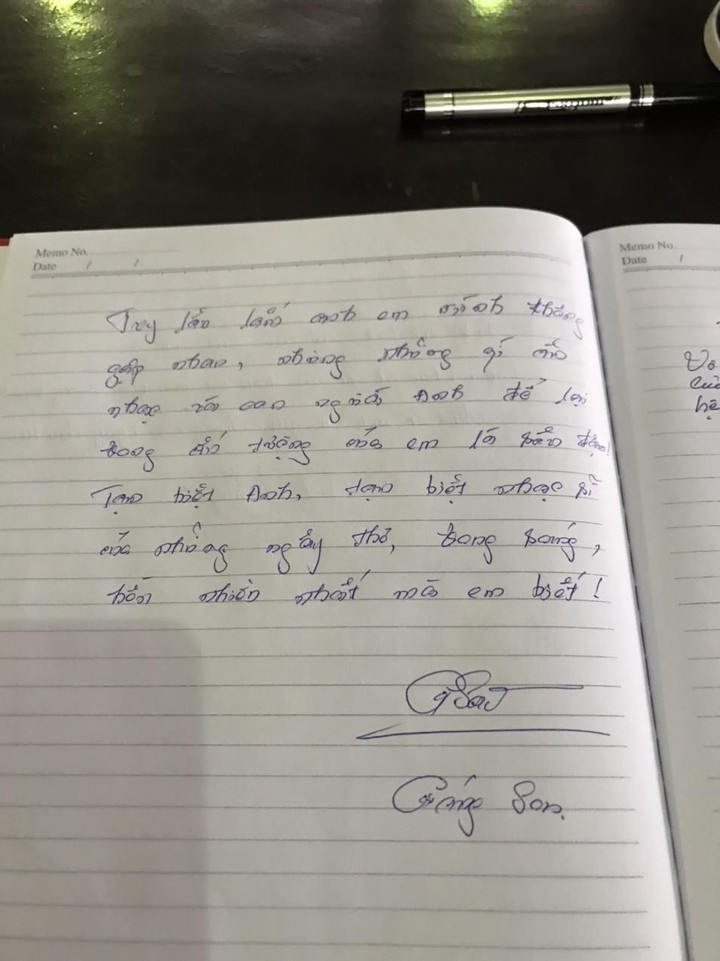 Memo No.
Date / /
Tuy lâu lắm anh em mình không
gặp nhau, nhưng những gì âm
nhạc và con người Anh để lại
trong ấn tượng của em là rất đẹp!
Tạm biệt Anh, tạm biệt nhạc sĩ
của những ngây thơ, trong sáng,
hồn nhiên nhất mà em biết!
Giáng Son.
Memo No.
Date /
Vô
của
hệ